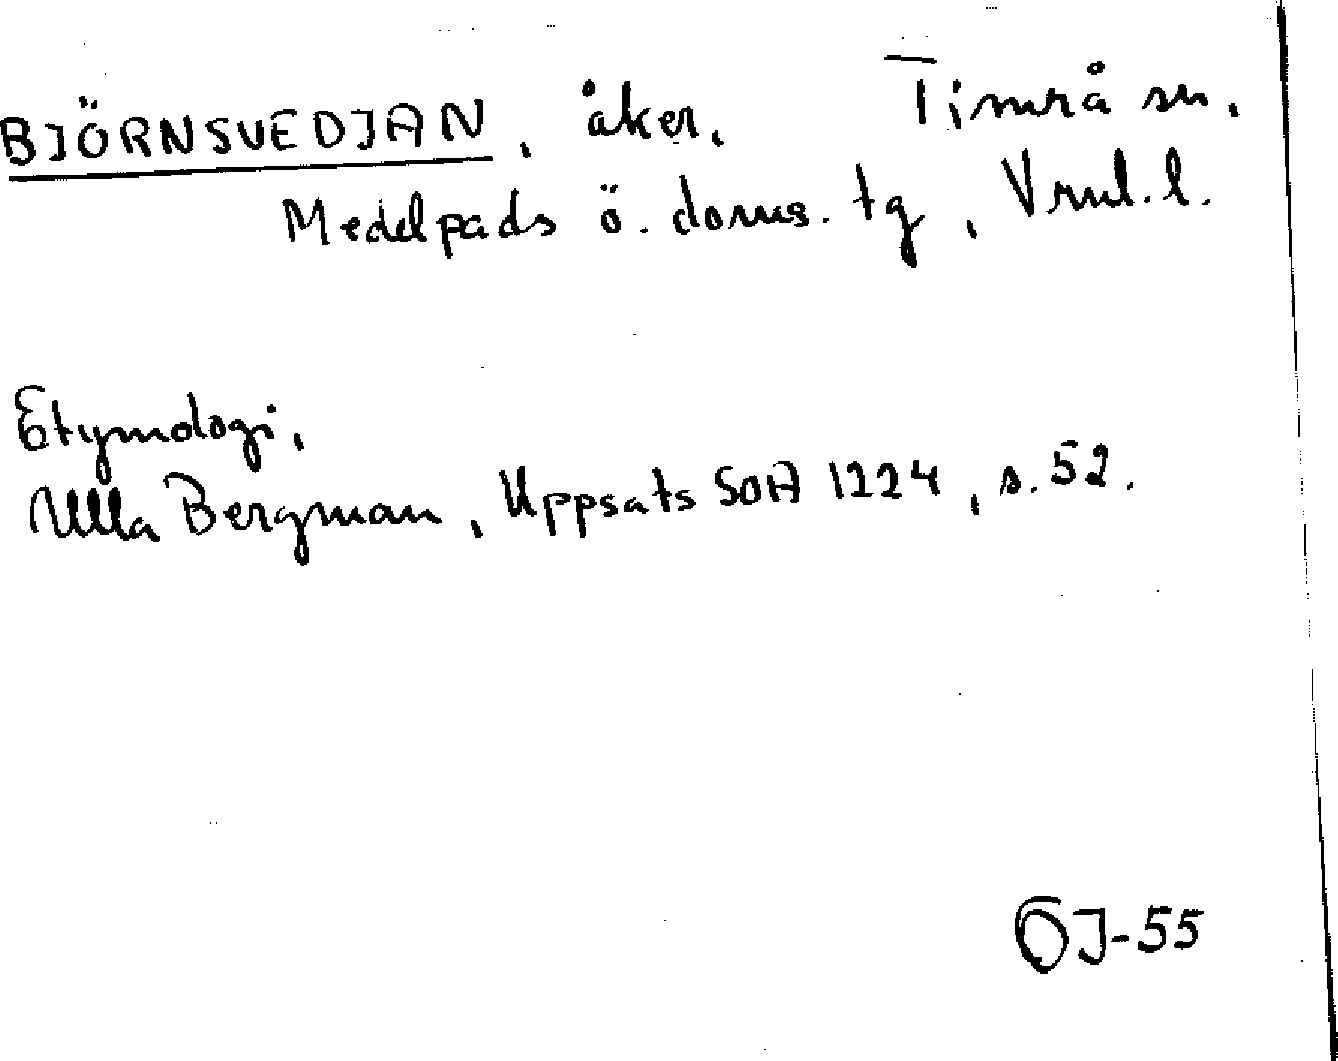 BJÖRNSVEDJAN, åker, Timrå sn,
Medelpads ö. doms. tg, Vrnl. l.
Etymologi,
Ulla Bergman, Uppsats SOA 1224, s. 52.
ÖJ-55